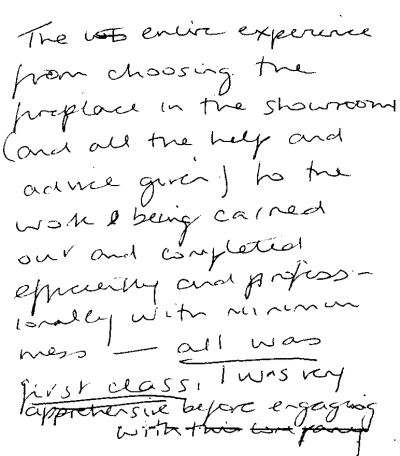 The entire experience
from choosing the
fireplace in the showroom
(and all the help and
advice given) to the
work being carried
out and completed
efficiently and profess-
ionally with minimum
mess — all was
first class. I was very
apprehensive before engaging
with this company